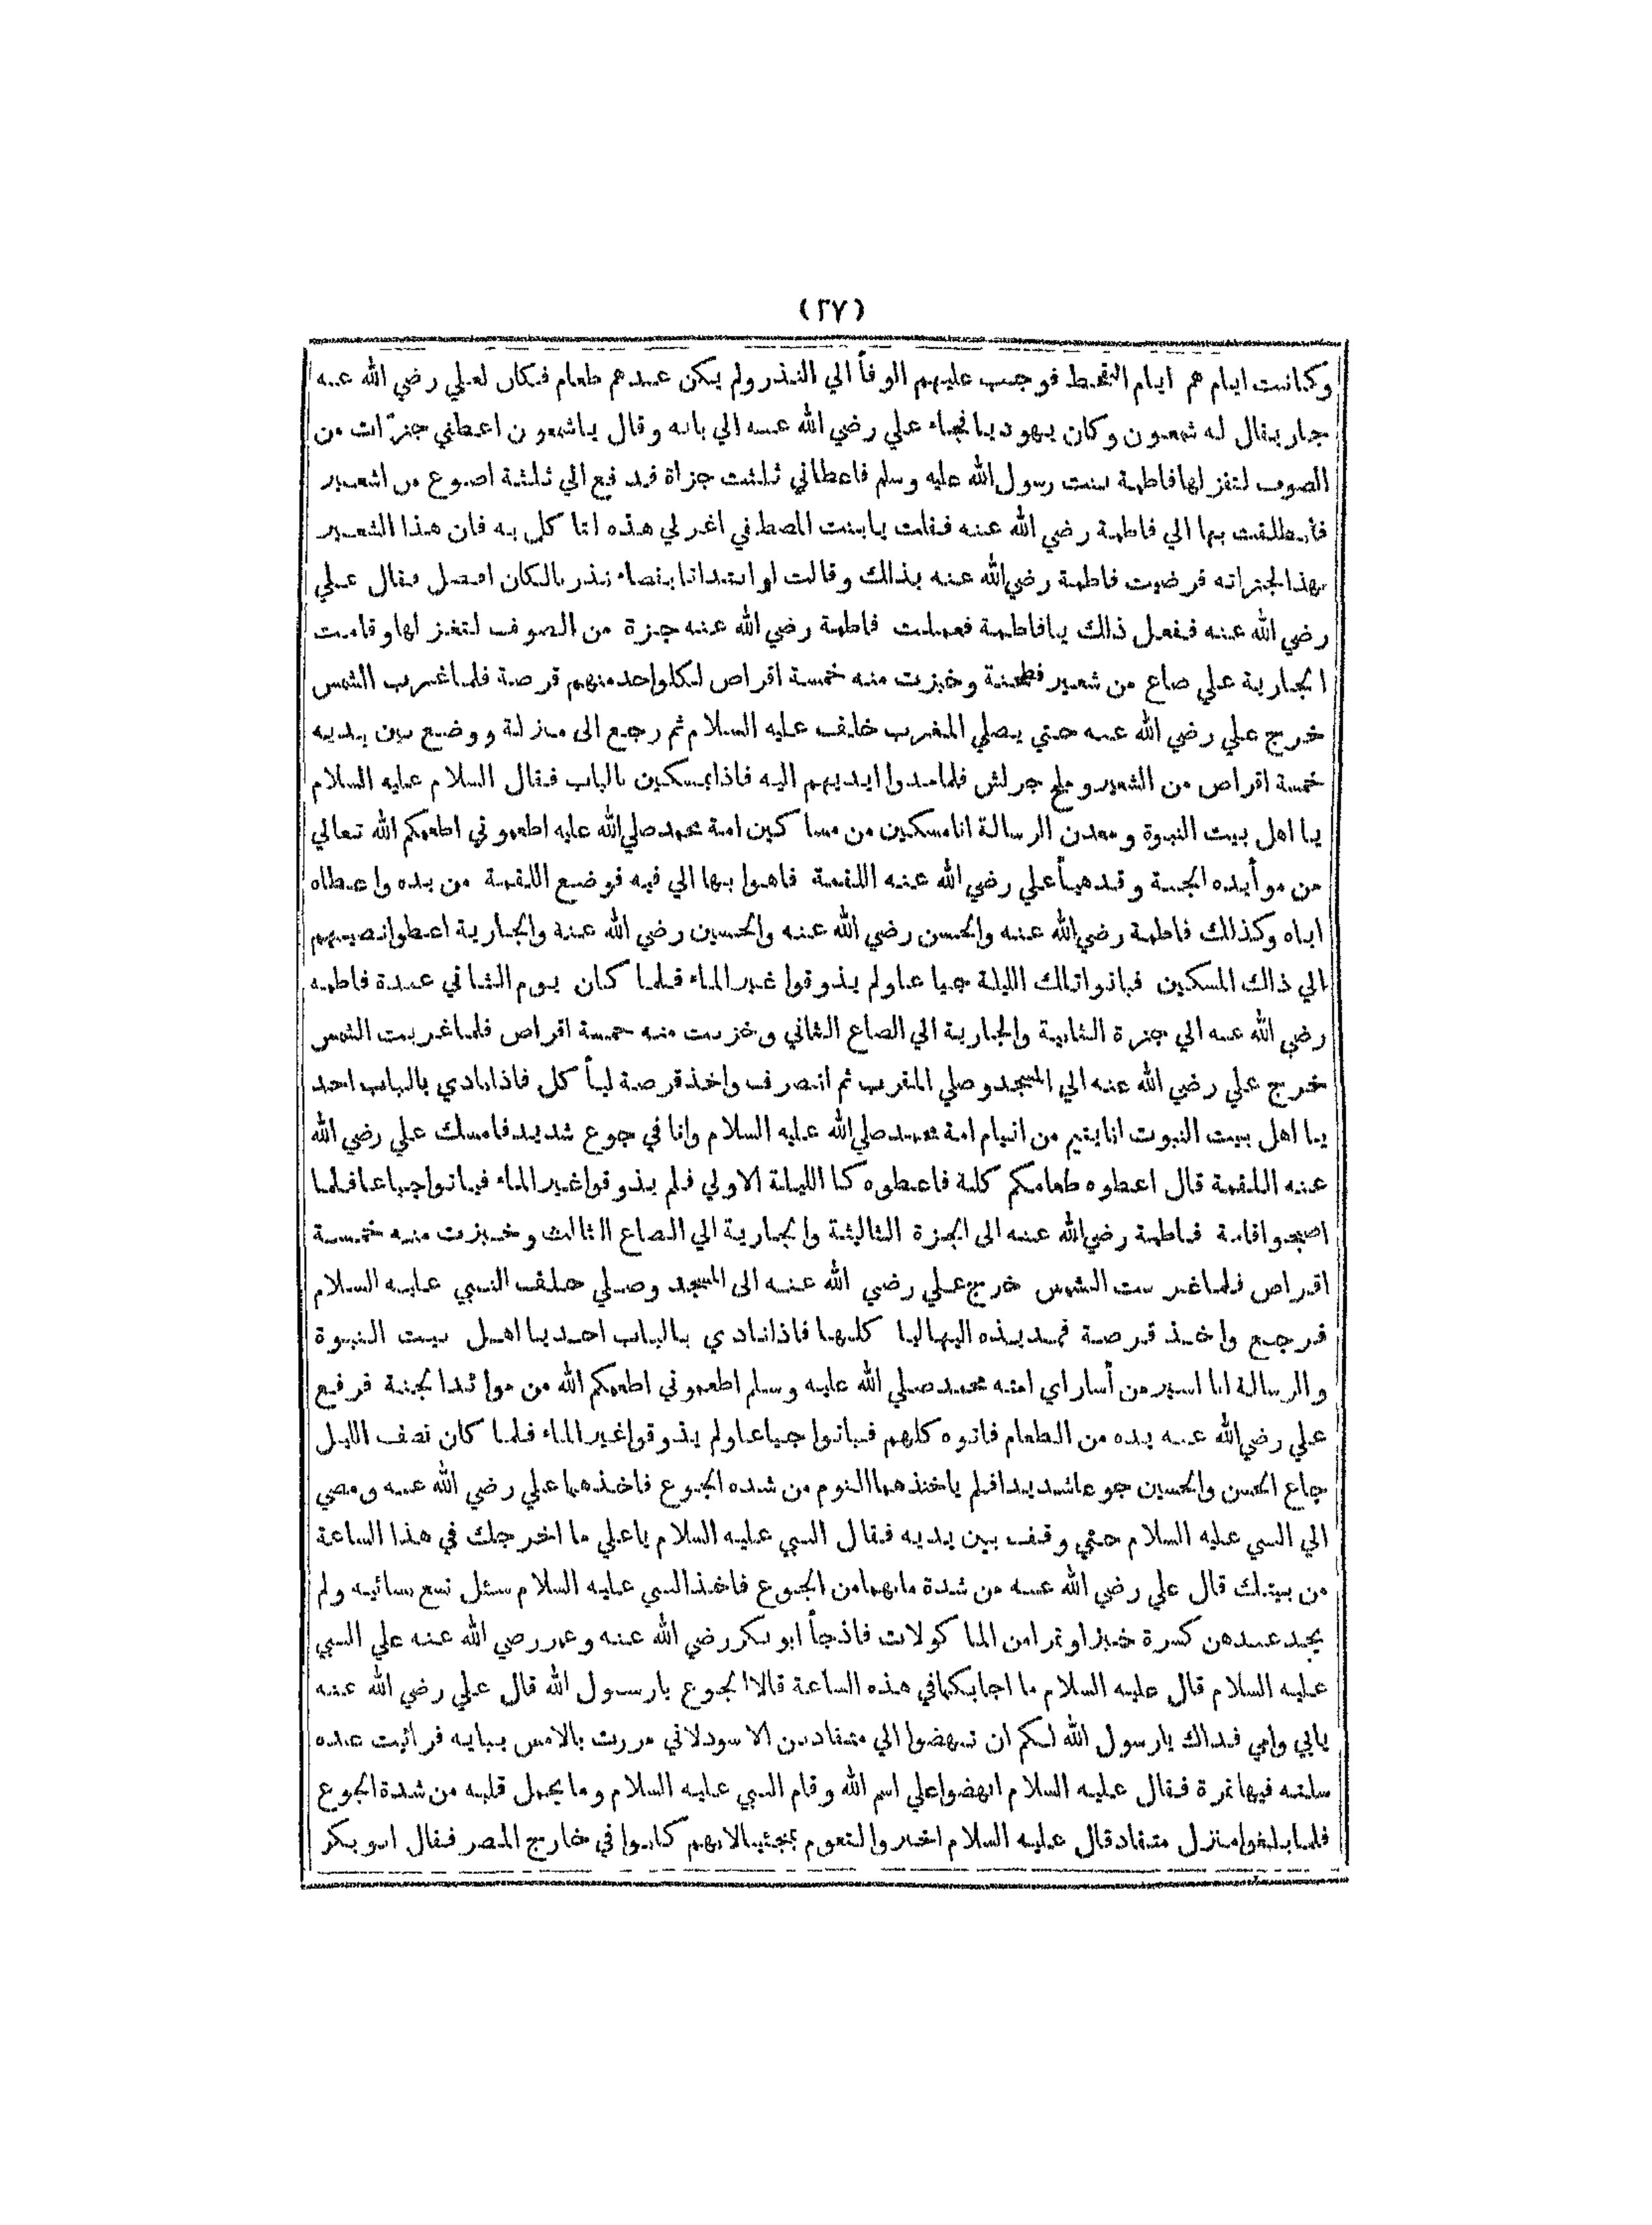 (٢٧)
وكانت ايام هم ايام القحط فوجب عليهم الوفأ الي النذر ولم يكن عندهم طعام فكان لعلي رضي الله عنه
جار يقال له شمعون وكان يهوديا فجاء علي رضي الله عنه الي بابه وقال ياشمعون اعطني جزّات من
الصوف لتغزلها فاطمة بنت رسول الله عليه وسلم فاعطاني ثلثت جزاة فدفع الي ثلثة اصوع من اشعير
فانطلقت بها الي فاطمة رضي الله عنه فقلت يابنت المصطفي اغزلي هذه انا كل به فان هذا الشعير
بهذا الجزاته فرضيت فاطمة رضي الله عنه بذالك وقالت لو ابتدانا بقضاء نذر بالكان افضل فقال علي
رضي الله عنه ففعل ذالك يافاطمة فعملت فاطمة رضي الله عنه جزة من الصوف لتغزلها وقامت
الجارية علي صاع من شعير فطحنة وخبزت منه خمسة اقراص لكلواحد منهم قرصة فلما غرب الشمس
خرج علي رضي الله عنه حتي يصلي المغرب خلف عليه السلام ثم رجع الى منزلة ووضع بين يديه
خمسة اقراص من الشعير وملح جرلش فلما مدوا ايديهم اليه فاذا بمسكين بالباب فقال السلام عليه السلام
يا اهل بيت النبوة ومعدن الرسالة انا مسكين من مساكين امة محمد صلي الله عليه اطعموني اطعمكم الله تعالي
من موأيده الجنة وقد هيأ علي رضي الله عنه اللقمة فاهوا بها الي فيه فوضع اللقمة من يده واعطاه
اباه وكذلك فاطمة رضي الله عنه والحسن رضي الله عنه والحسين رضي الله عنة والجارية اعطوا نصيبهم
الي ذالك المسكين فباتوا تالك الليلة جيا عا ولم يذوقوا غير الماء فلما كان يوم الثاني عمدة فاطمه
رضي الله عنه الي جزة الثانية والجارية الي الصاع الثاني وخزبت منه خمسة اقراص فلما غربت الشمس
خرج علي رضي الله عنه الي المسجد وصلي المغرب ثم انصرف واخذ قرصة ليأ كل فاذا نادي بالباب احد
يا اهل بيت النبوت انا يتيم من اتيام امة محمد صلي الله عليه السلام وانا في جوع شديد فامسك علي رضي الله
عنه اللقمة قال اعطوه طعامكم كلة فاعطوه كا الليلة الاولي فلم يذوقوا غير الماء فباتوا جياعا فلما
اصبحوا قامة فاطمة رضي الله عنه الى الجزة الثالثة والجارية الي الصاع الثالث وخبزت منه خمسة
اقراص فلما غربت الشمس خرج علي رضي الله عنه الى المسجد وصلي خلف النبي عليه السلام
فرجع واخذ قرصة فمد يذه اليها ليا كلها فاذا نادي بالباب احد يا اهل بيت النبوة
والرسالة انا اسير من أساراي امته محمد صلي الله عليه وسلم اطعموني اطعمكم الله من موائدا لجنة فرفع
علي رضي الله عنه يده من الطعام فاتوه كلهم فباتوا جياعا ولم يذوقوا غير الماء فلما كان نصف الليل
جاع الحسن والحسين جوعا شديدا فلم ياخذهما النوم من شده الجوع فاخذهما علي رضي الله عنه ومضي
الي النبي عليه السلام حتي وقف بين يديه فقال النبي عليه السلام ياعلي ما اخرجك في هذا الساعة
من بيتك قال علي رضي الله عنه من شدة مابهما من الجوع فاخذ النبي عليه السلام سئل تسع نسائيه ولم
يجد عندهن كسرة خبز او تمر امن الما كولات فاذجأ ابو بكر رضي الله عنه وعمر رضي الله عنه علي النبي
عليه السلام قال عليه السلام ما اجابكما في هذه الساعة قالا الجوع يارسول الله قال علي رضي الله عنه
يابي وامي فداك يارسول الله لكم ان تنهضوا الي مقدادبن الاسود لاني مررت بالامس ببابه فرأيت عنده
سلته فيها تمرة فقال عليه السلام انهضوا علي اسم الله وقام النبي عليه السلام وما يحمل قلبه من شدة الجوع
فلما بلغوا منزل مقداد قال عليه السلام اخبروا القوم بمجئينا لانهم كانوا في خارج المصر فقال ابو بكر